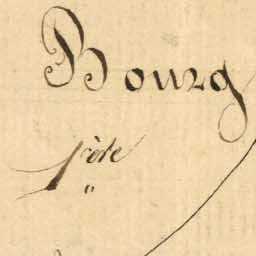 Bourg
1ère
"